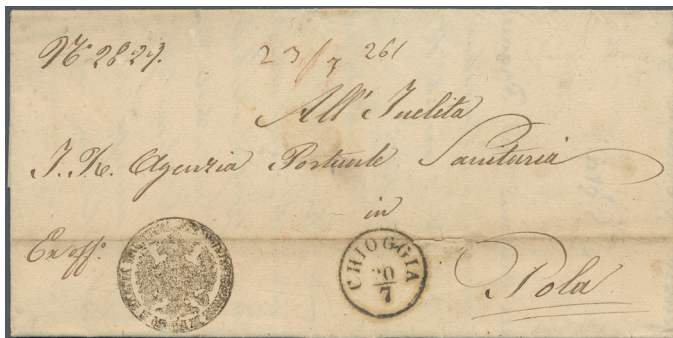 No 2829.
23/7 261
All' Inclita
I. R. Agenzia Portuale Sanitaria
in
Ex off:o
CHIOGGIA
20/7
Pola